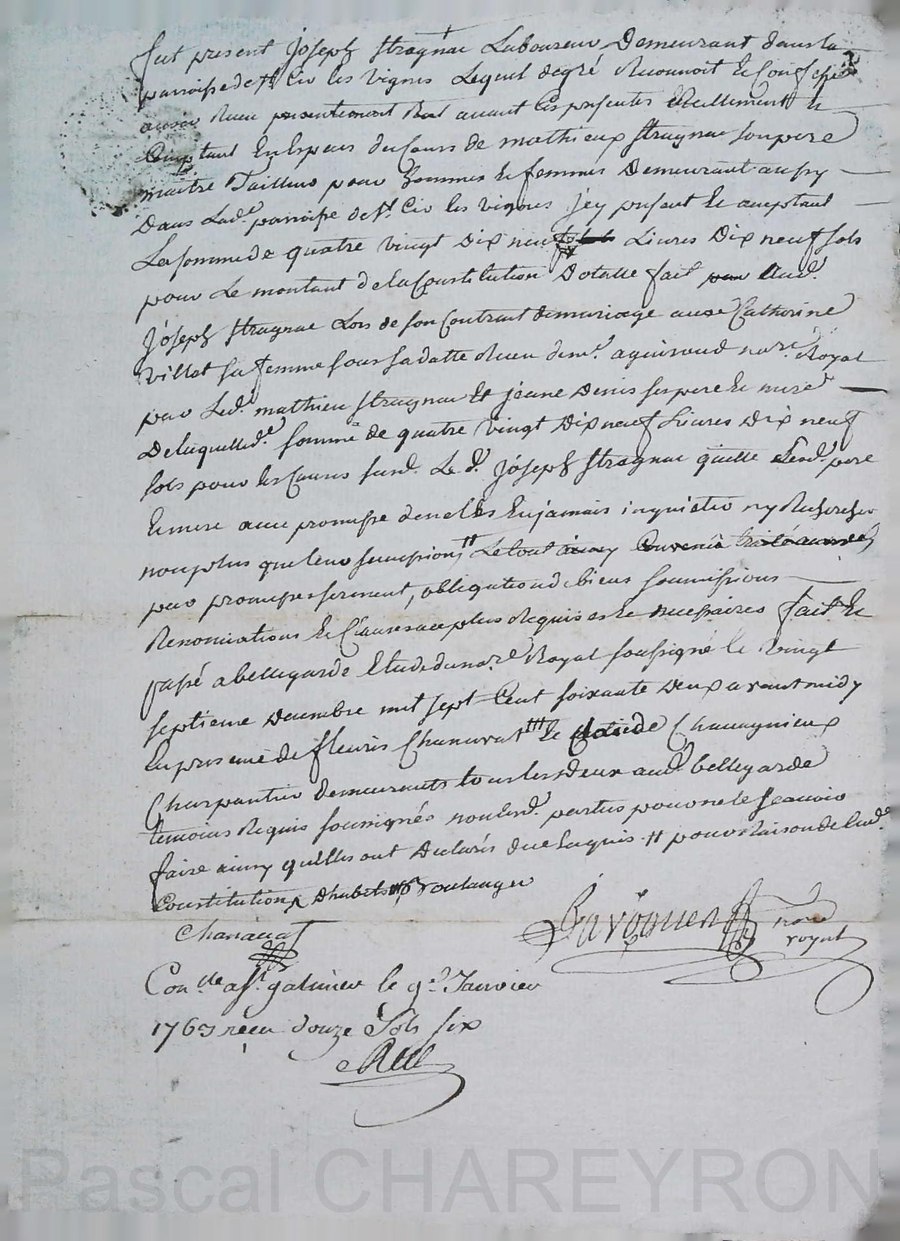 fut present Joseph Stragnac Laboureur Demeurant dans la
parroisse de St Cir les vignes Lequel de gré Reconnoit et Confesse
avoir Receu avant Ces presentes Reellement et
Comptant En Especes du Cours de mathieux Stragnac son pere
maitre Tailleur pour hommes et femmes Demeurant aussy
Dans Lade. parroisse de St. Cir les vignes Jcy present et acceptant
La somme de quatre vingt Dix neuf Livres Dix neuf sols
pour Le montant de la Constitution Dotalle fait aud.
Joseph Stragnac Lors de son Contrant de mariage avec Catherine
villot sa femme sous sa datte Receu de me. aguiraud nore. Royal
par Led. mathieu Stragnac Et jeane Denis ses pere et mere
De laquelle de. somme de quatre vingt Dix neuf Livres Dix neuf
sols pour les Causes susd. Le d. Joseph Stragnac quitte sesd. pere
et mere avec promesse de ne les En jamais inquieter ny Rechercher
non plus que leurs successions # Le tout ainsy Convenu
par promesse serment, obligation de biens soumissions
Renonciations et Clauses a ce plus Requises et necessaires fait et
passé a bellegarde Etude du nore. Royal soussigné le vingt
septieme Decembre mil sept Cent soixante Deux avant midy
En presence de fleuris Chanavat et Claude Chavagnieux
Charpantier demeurants tous les deux aud. bellegarde
temoins Requis soussignés non lesd. parties pour ne le scavoir
faire ainsy qu'elles ont Declarés de ce Enquis # pour Raison de lad.
Constitution Boulanger
Chanavat
nore
royal
Con.lle a St. galmier le 9e. Janvier
1763 receu douze sols six